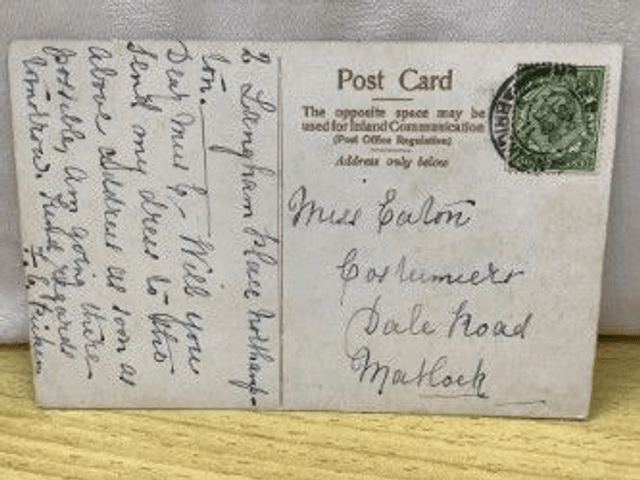 2 Langham Place Northamp-
ton.
Dear Miss E, - Will you
send my dress to this
above address as soon as
possible, am going there
tomorrow. Kind regards
Post Card
The opposite space may be
used for Inland Communication
(Post Office Regulation)
Address only below
Miss Eaton
Costumiers
Dale Road
Matlock